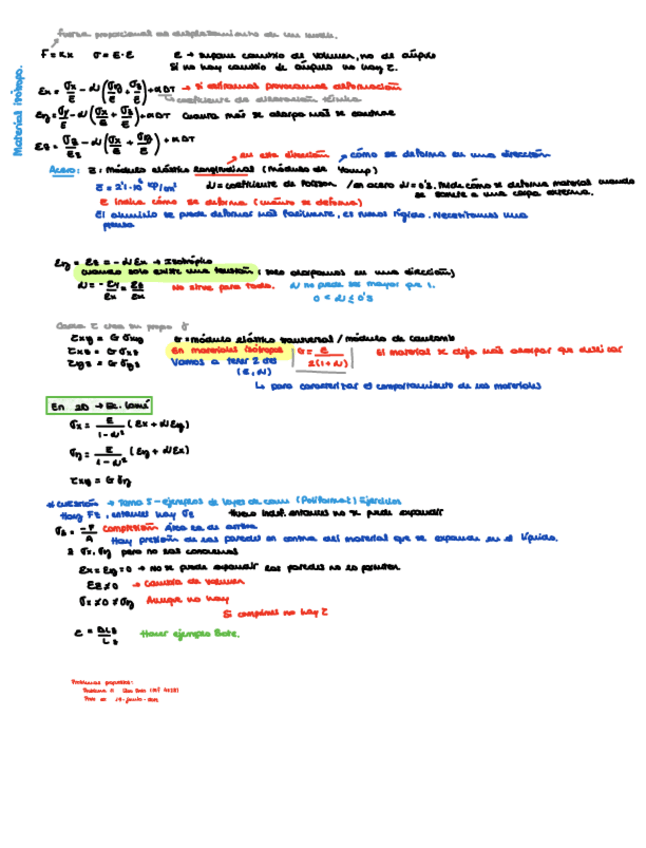 fuerza proporcional al desplazamiento de un muelle.
F = K·x σ = E·ε ε → supone cambio de volumen, no de ángulo
Si no hay cambio de ángulo no hay τ.
Material isótropo.
εx = σx/E - ν(σy/E + σz/E) + αΔT → si estiramos provocamos deformación
coeficiente de dilatación térmica
εy = σy/E - ν(σx/E + σz/E) + αΔT Cuanto más se alarga más se contrae
εz = σz/E - ν(σx/E + σy/E) + αΔT
en esta dirección cómo se deforma en una dirección
Acero: E: módulo elástico longitudinal (módulo de Young)
E = 2'1·10⁶ kp/cm² ν = coeficiente de Poisson / en acero ν = 0'3. Mide cómo se deforma material cuando se somete a una carga externa.
E indica cómo se deforma (cuánto se deforma)
El aluminio se puede deformar más fácilmente, es menos rígido. Necesitamos una
εy = εz = -νεx → Isotrópico
cuando solo existe una tensión (solo alargamos en una dirección)
ν = -εy/εx = εz/εx No sirve para todo. ν no puede ser mayor que 1.
0 < ν ≤ 0'5
Cada τ crea su propio γ
τxy = G γxy G = módulo elástico transversal / módulo de coulomb
τxz = G γxz En materiales isótropos G = E/2(1+ν) El material se deja más alargar que deslizar
τyz = G γyz Vamos a tener 2 ctes
(E, ν)
↳ para caracterizar el comportamiento de los materiales
En 2D → Ec. Lamé
σx = E/1-ν² (εx + νεy)
σy = E/1-ν² (εy + νεx)
τxy = G γxy
* cuestión → Tema 5 - ejemplos de leyes de comp (Poliformat) Ejercicios
Hay Fz, entonces hay σz Hueco indef. entonces no se puede expandir
σz = -P/A compresión Área es de arriba
Hay presión de las paredes en contra del material que se expande en el líquido.
∃ σx, σy pero no las conocemos
εx = εy = 0 → No se puede expandir las paredes no lo permiten
εz ≠ 0 → Cambia de volumen
σx ≠ 0 ≠ σy Aunque no hay
Si comprimes no hay τ
ε = ΔLz/Lz Hacer ejemplo Bote.
Problemas propuestos: